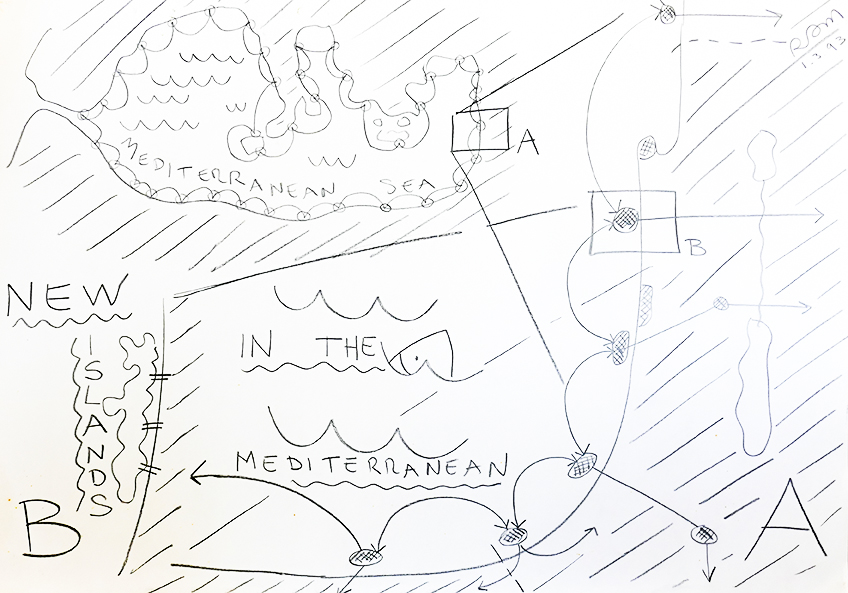 MEDITERRANEAN SEA
A
1.3.93
B
NEW
ISLANDS
IN THE
MEDITERRANEAN
B
A